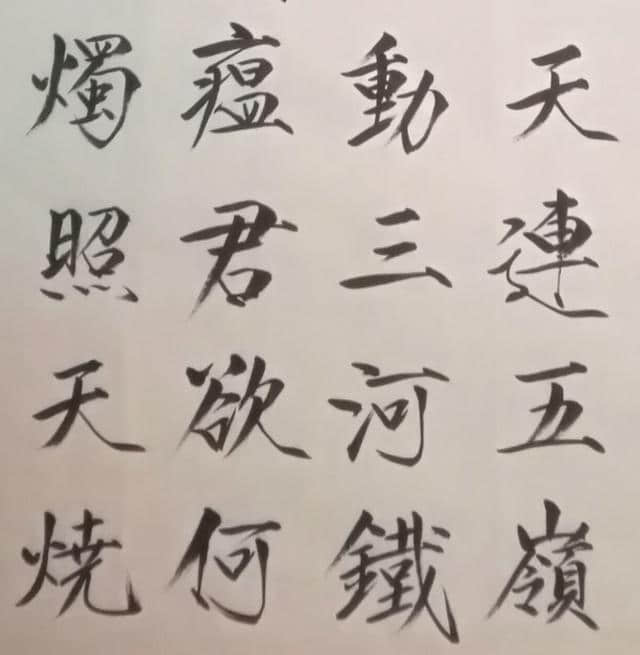 天連五嶺
動三河鐵
瘟君欲何
燭照天焼